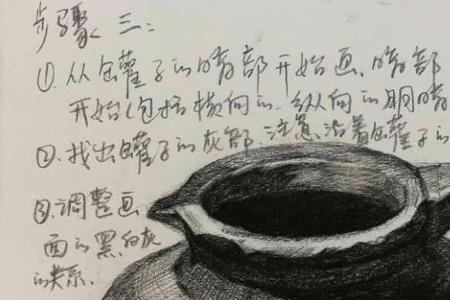 步骤三:
①.从陶罐子的暗部开始画.暗部
开始(包括横向的.纵向的明暗
②.找出陶罐子的灰部.注意沿着陶罐子的
③.调整画
面的黑白灰
的关系.